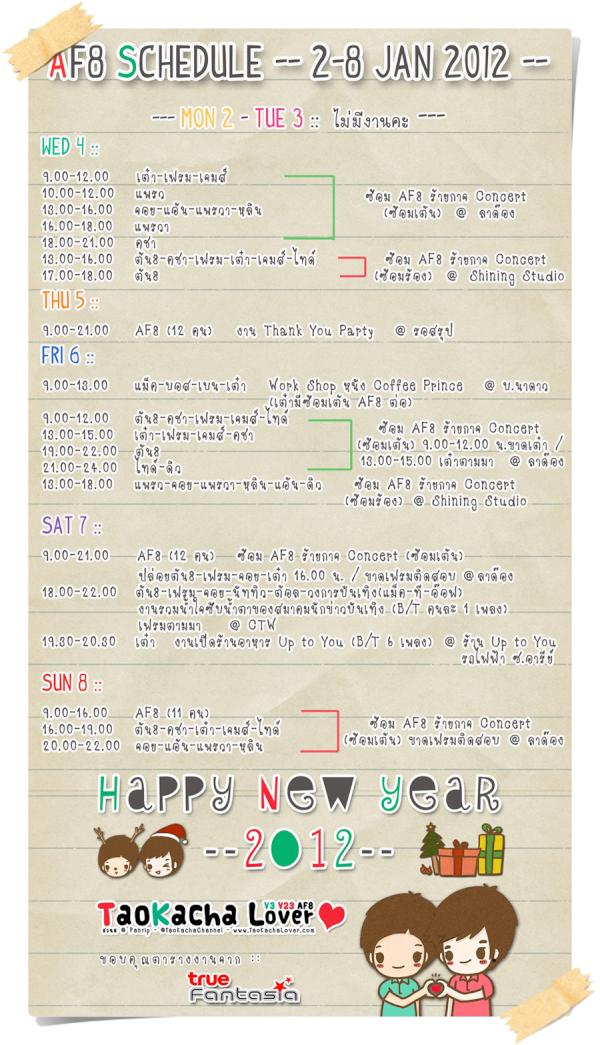 AF8 SCHEDULE -- 2-8 JAN 2012 --
--- MON 2 - TUE 3 :: ไม่มีงานคะ ---
WED 4 ::
9.00-12.00 เต๋า-เฟรม-เจมส์
10.00-12.00 แพรว
13.00-16.00 จอย-แอ้น-แพรวา-หลิน
16.00-18.00 แพรวา
18.00-21.00 คชา
ซ้อม AF8 ร้ายกาจ Concert
(ซ้อมเต้น) @ ลาด๊อง
13.00-16.00 ต้น8-คชา-เฟรม-เต๋า-เจมส์-ไทด์
17.00-18.00 ต้น8
ซ้อม AF8 ร้ายกาจ Concert
(ซ้อมร้อง) @ Shining Studio
THU 5 ::
9.00-21.00 AF8 (12 คน) งาน Thank You Party @ รอสรุป
FRI 6 ::
9.00-18.00 แม็ค-บอส-เบน-เต๋า Work Shop หนัง Coffee Prince @ บ.นาดาว
(เต๋ามีซ้อมเต้น AF8 ต่อ)
9.00-12.00 ต้น8-คชา-เฟรม-เจมส์-ไทด์
13.00-15.00 เต๋า-เฟรม-เจมส์-คชา
19.00-22.00 ต้น8
21.00-24.00 ไทด์-ดิว
ซ้อม AF8 ร้ายกาจ Concert
(ซ้อมเต้น) 9.00-12.00 น.ขาดเต๋า /
13.00-15.00 เต๋าตามมา @ ลาด๊อง
13.00-18.00 แพรว-จอย-แพรวา-หลิน-แอ้น-ดิว ซ้อม AF8 ร้ายกาจ Concert
(ซ้อมร้อง) @ Shining Studio
SAT 7 ::
9.00-21.00 AF8 (12 คน) ซ้อม AF8 ร้ายกาจ Concert (ซ้อมเต้น)
ปล่อยต้น8-เฟรม-จอย-เต๋า 16.00 น. / ขาดเฟรมติดสอบ @ ลาด๊อง
18.00-22.00 ต้น8-เฟรม-จอย-นัททิว-ต้อล-วงการบันเทิง(แม็ค-ที-อ๊อฟ)
งานรวมน้ำใจซับน้ำตาของสมาคมนักข่าวบันเทิง (B/T คนละ 1 เพลง)
เฟรมตามมา @ CTW
19.30-20.30 เต๋า งานเปิดร้านอาหาร Up to You (B/T 6 เพลง) @ ร้าน Up to You
รถไฟฟ้า ซ.อารีย์
SUN 8 ::
9.00-16.00 AF8 (11 คน)
16.00-19.00 ต้น8-คชา-เต๋า-เจมส์-ไทด์
20.00-22.00 จอย-แอ้น-แพรวา-หลิน
ซ้อม AF8 ร้ายกาจ Concert
(ซ้อมเต้น) ขาดเฟรมติดสอบ @ ลาด๊อง
Happy New Year
--2012--
TaoKacha Lover V3 V23 AF8
@ Pantip - @TaoKachaChannel - www.TaoKachaLover.com
ขอบคุณตารางงานจาก ::
true
Fantasia